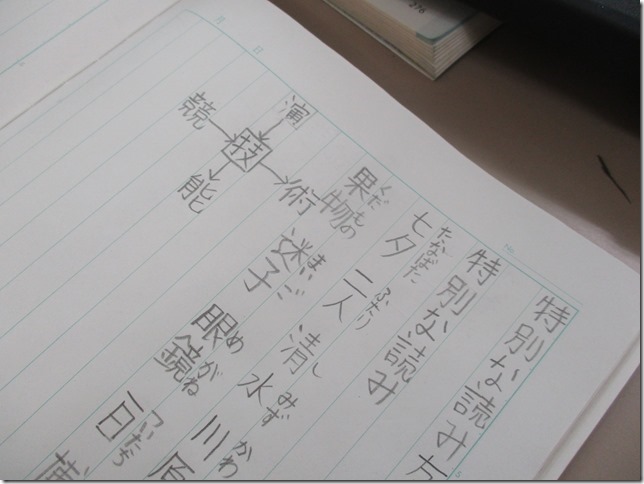 特別な読み方
特別な読み
七夕 二人 清水 川原
たなばた ふたり しみず かわ
果物 迷子 眼鏡 一日
くだもの まいご めがね ついたち
演
競 技 術
能
月 日
276